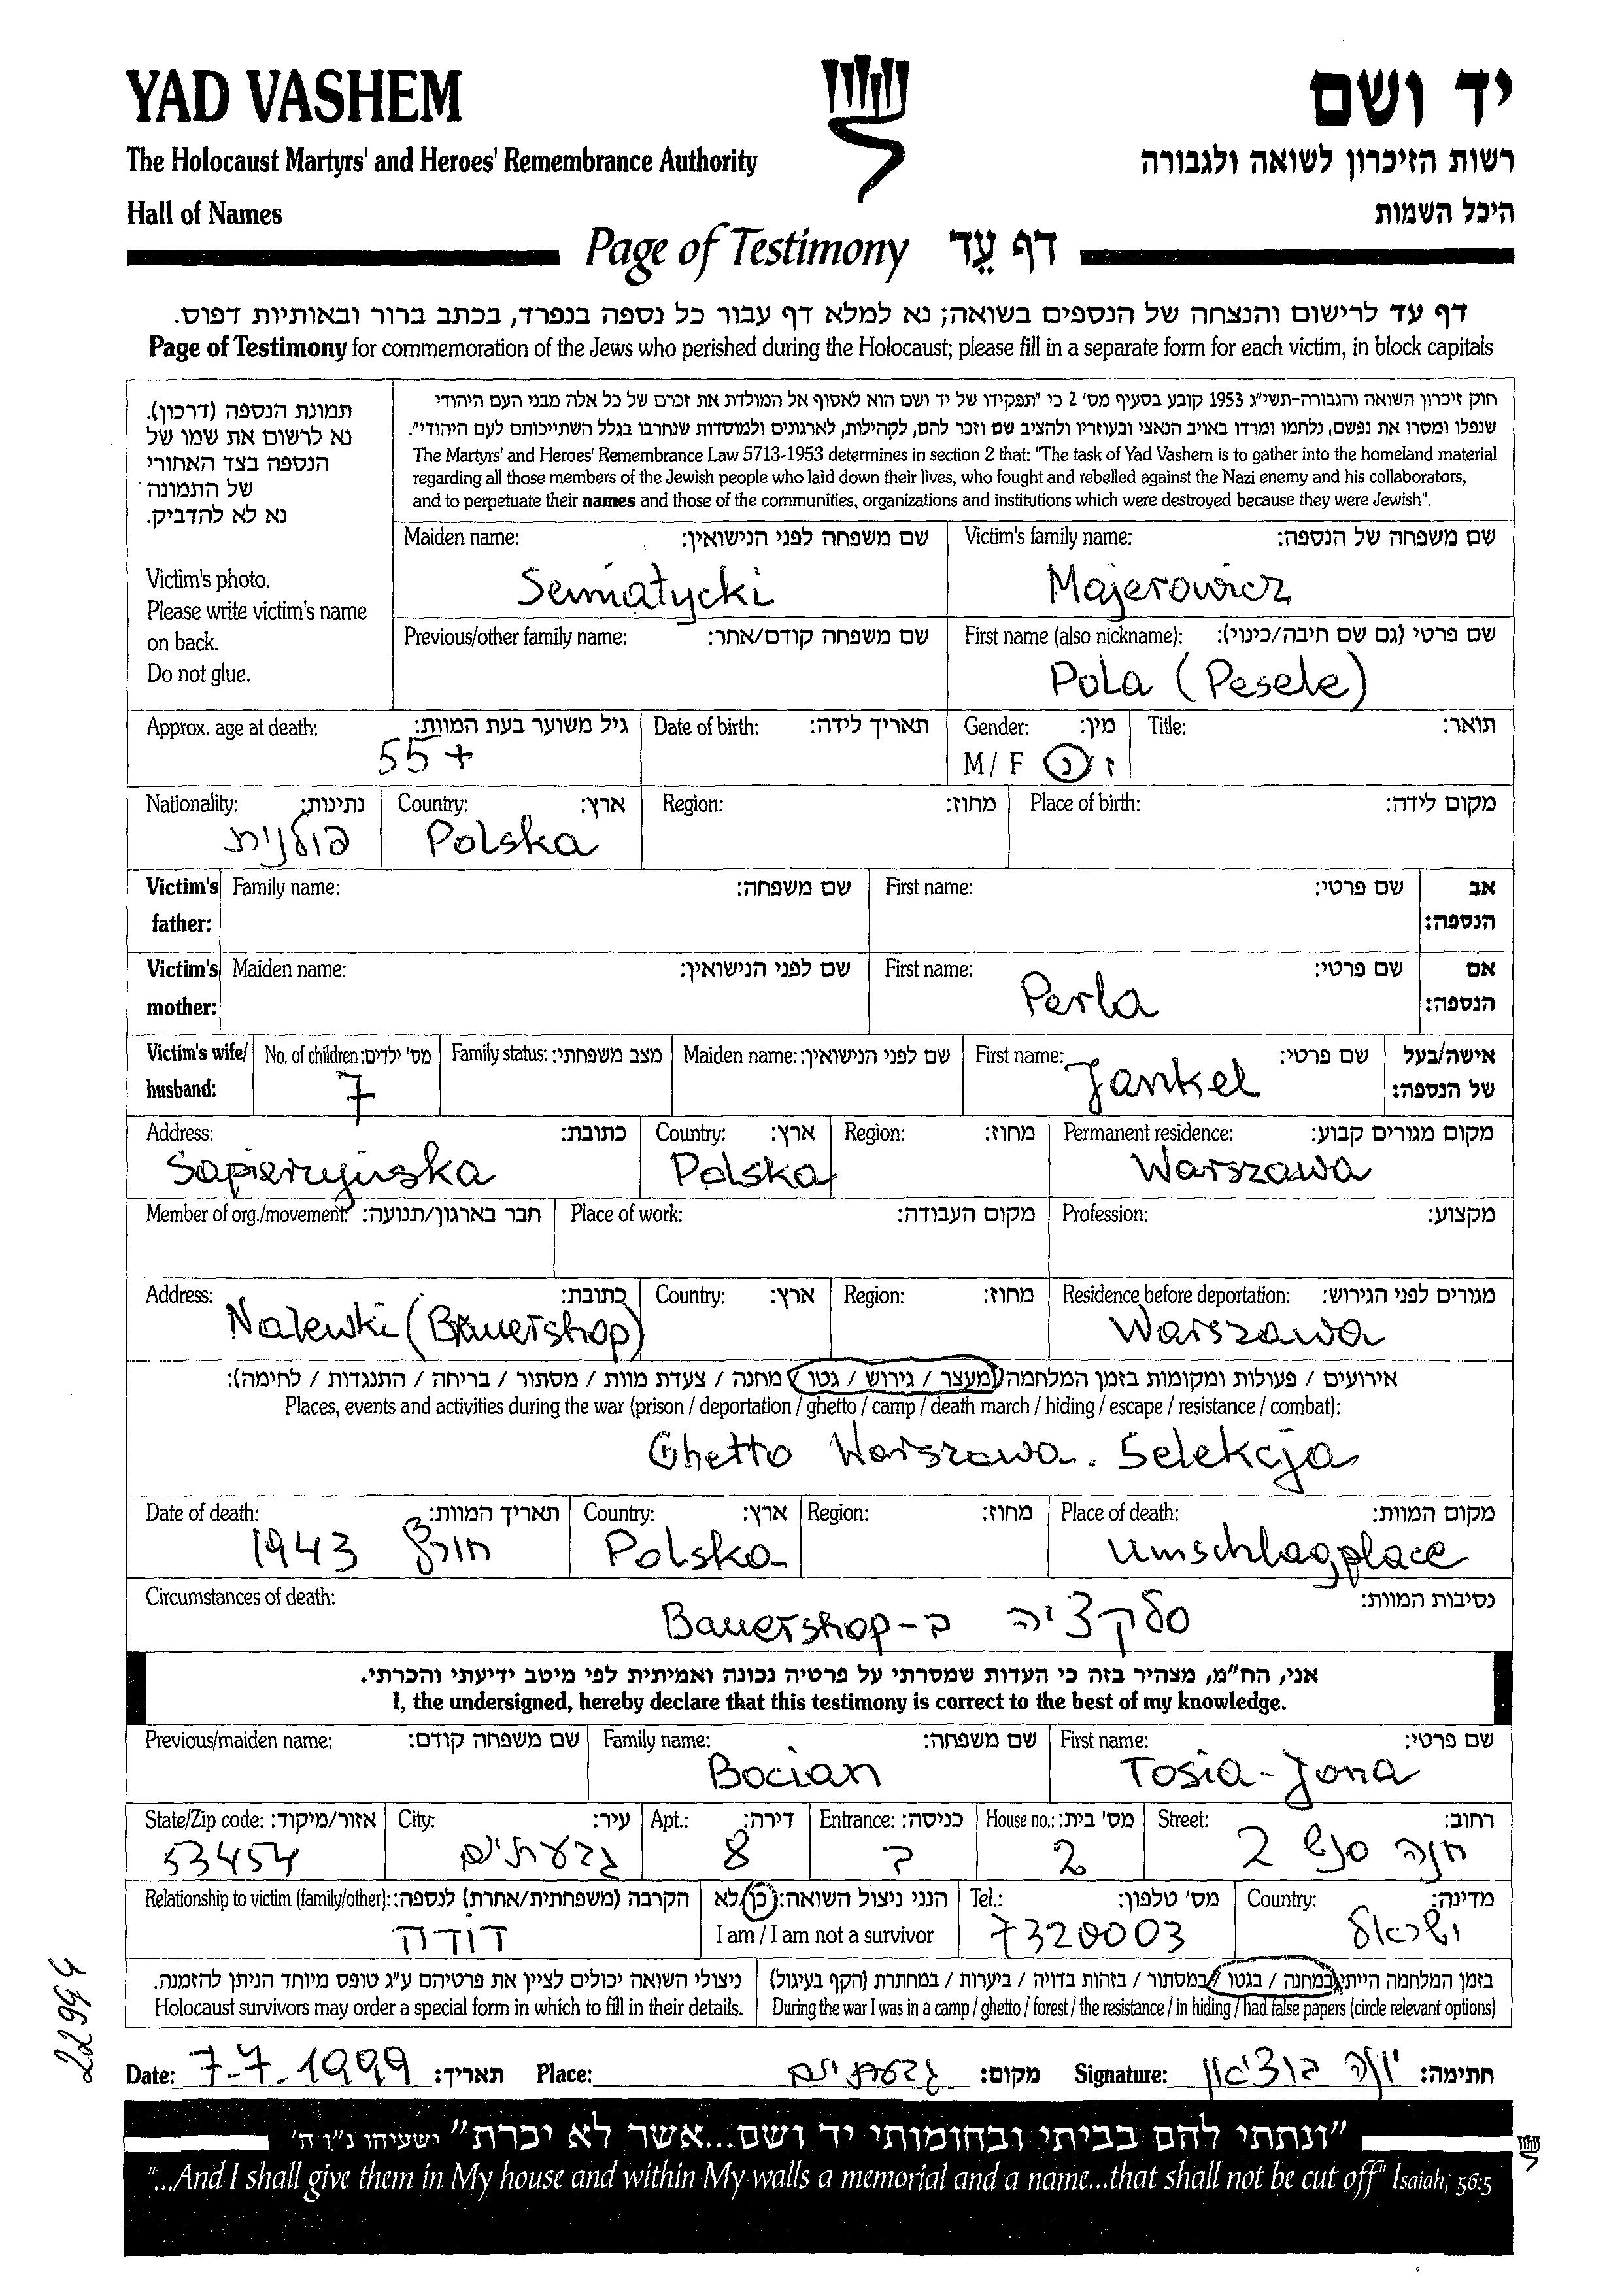 YAD VASHEM
יד ושם
The Holocaust Martyrs' and Heroes' Remembrance Authority
רשות הזיכרון לשואה ולגבורה
Hall of Names
היכל השמות
Page of Testimony דף עֵד
דף עד לרישום והנצחה של הנספים בשואה; נא למלא דף עבור כל נספה בנפרד, בכתב ברור ובאותיות דפוס.
Page of Testimony for commemoration of the Jews who perished during the Holocaust; please fill in a separate form for each victim, in block capitals
תמונת הנספה (דרכון).
נא לרשום את שמו של
הנספה בצד האחורי
של התמונה
נא לא להדביק.
Victim's photo.
Please write victim's name
on back.
Do not glue.
חוק זיכרון השואה והגבורה-תשי"ג 1953 קובע בסעיף מס' 2 כי "תפקידו של יד ושם הוא לאסוף אל המולדת את זכרם של כל אלה מבני העם היהודי
שנפלו ומסרו את נפשם, נלחמו ומרדו באויב הנאצי ובעוזריו ולהציב שם וזכר להם, לקהילות, לארגונים ולמוסדות שנחרבו בגלל השתייכותם לעם היהודי".
The Martyrs' and Heroes' Remembrance Law 5713-1953 determines in section 2 that: "The task of Yad Vashem is to gather into the homeland material
regarding all those members of the Jewish people who laid down their lives, who fought and rebelled against the Nazi enemy and his collaborators,
and to perpetuate their names and those of the communities, organizations and institutions which were destroyed because they were Jewish".
Maiden name: שם משפחה לפני הנישואין: Victim's family name: שם משפחה של הנספה:
Semiatycki Majerowicz
Previous/other family name: שם משפחה קודם/אחר: First name (also nickname): שם פרטי (גם שם חיבה/כינוי):
Pola (Pesele)
Approx. age at death: גיל משוער בעת המוות: Date of birth: תאריך לידה: Gender: מין: Title: תואר:
55+ M / F ז נ
Nationality: נתינות: Country: ארץ: Region: מחוז: Place of birth: מקום לידה:
פולנית Polska
Victim's Family name: שם משפחה: First name: שם פרטי: אב
father: הנספה:
Victim's Maiden name: שם לפני הנישואין: First name: שם פרטי: אם
mother: Perla הנספה:
Victim's wife/ No. of children: מס' ילדים: Family status: מצב משפחתי: Maiden name: שם לפני הנישואין: First name: שם פרטי: אישה/בעל
husband: 7 Jankel של הנספה:
Address: כתובת: Country: ארץ: Region: מחוז: Permanent residence: מקום מגורים קבוע:
Sapierzyńska Polska Warszawa
Member of org./movement: חבר בארגון/תנועה: Place of work: מקום העבודה: Profession: מקצוע:
Address: כתובת: Country: ארץ: Region: מחוז: Residence before deportation: מגורים לפני הגירוש:
Nalewki (Bauershop) Warszawa
אירועים / פעולות ומקומות בזמן המלחמה (מעצר / גירוש / גטו / מחנה / צעדת מוות / מסתור / בריחה / התנגדות / לחימה):
Places, events and activities during the war (prison / deportation / ghetto / camp / death march / hiding / escape / resistance / combat):
Ghetto Warszawa. Selekcja
Date of death: תאריך המוות: Country: ארץ: Region: מחוז: Place of death: מקום המוות:
1943 חורף Polska Umschlagplace
Circumstances of death: נסיבות המוות:
סלקציה ב-Bauershop
אני, הח"מ, מצהיר בזה כי העדות שמסרתי על פרטיה נכונה ואמיתית לפי מיטב ידיעתי והכרתי.
I, the undersigned, hereby declare that this testimony is correct to the best of my knowledge.
Previous/maiden name: שם משפחה קודם: Family name: שם משפחה: First name: שם פרטי:
Bocian Tosia-Jona
State/Zip code: אזור/מיקוד: City: עיר: Apt.: דירה: Entrance: כניסה: House no.: מס' בית: Street: רחוב:
53454 גבעתיים 8 ב 2 חנה סנש 2
Relationship to victim (family/other): הקרבה (משפחתית/אחרת) לנספה: הנני ניצול השואה: כן/לא Tel.: מס' טלפון: Country: מדינה:
דודה I am / I am not a survivor 7320003 ישראל
ניצולי השואה יכולים לציין את פרטיהם ע"ג טופס מיוחד הניתן להזמנה. בזמן המלחמה הייתי במחנה / בגטו / במסתור / בזהות בדויה / ביערות / במחתרת (הקף בעיגול)
Holocaust survivors may order a special form in which to fill in their details. During the war I was in a camp / ghetto / forest / the resistance / in hiding / had false papers (circle relevant options)
Date: 7-7.1999 תאריך: Place: גבעתיים מקום: Signature: יונה בוציאן חתימה:
22994
"ונתתי להם בביתי ובחומותי יד ושם...אשר לא יכרת" ישעיהו נ"ו ה'
"...And I shall give them in My house and within My walls a memorial and a name...that shall not be cut off" Isaiah, 56:5